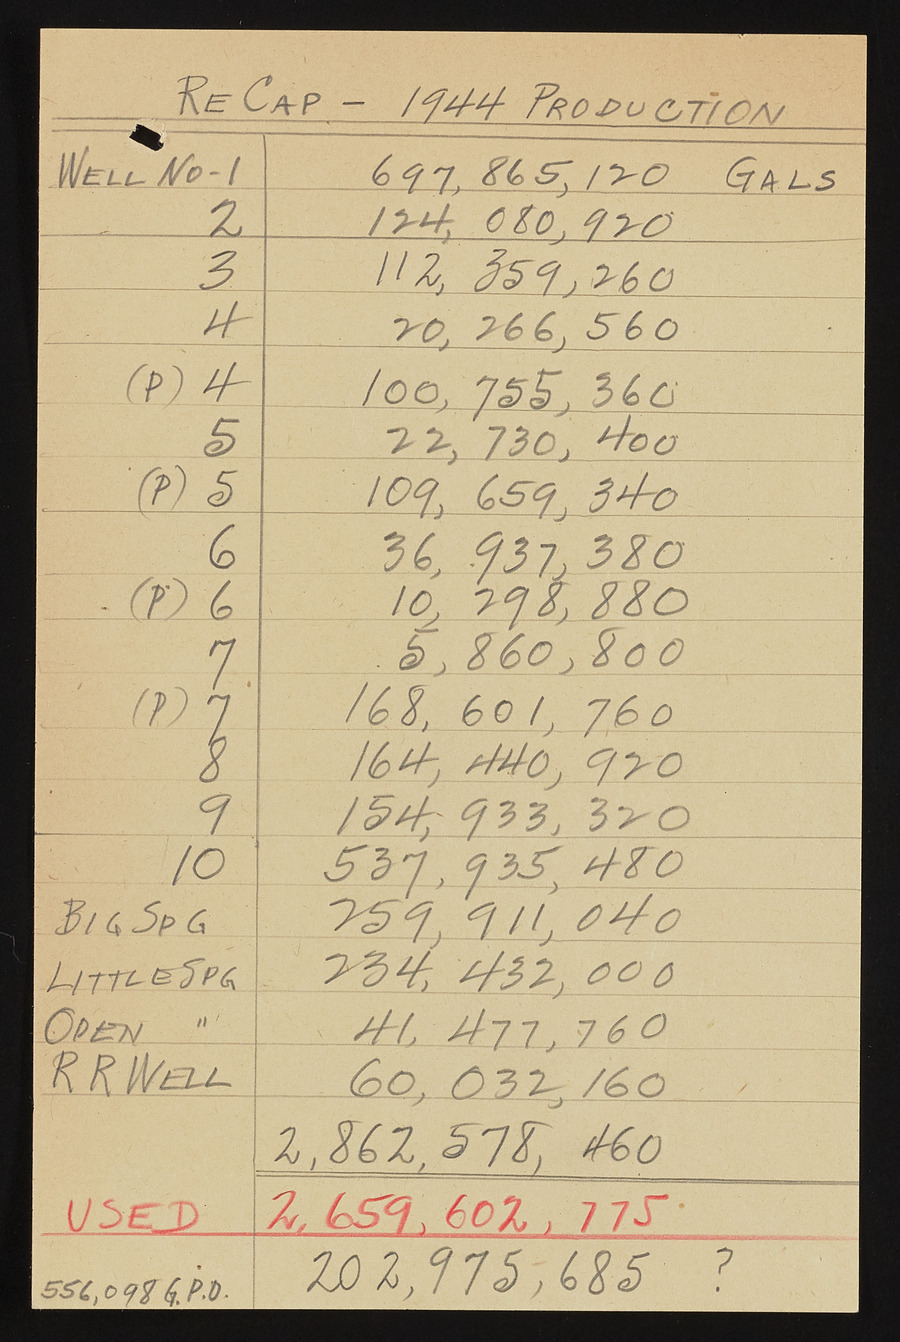 RE CAP - 1944 PRODUCTION
WELL NO-1 697,865,120 GALS
2 124,080,920
3 112,359,260
4 20,266,560
(P) 4 100,755,360
5 22,730,400
(P) 5 109,659,340
6 36,937,380
(P) 6 10,298,880
7 5,860,800
(P) 7 168,601,760
8 164,440,920
9 154,933,320
10 537,935,480
BIG SPG 259,911,040
LITTLE SPG 234,432,000
OPEN " 41,477,760
R R WELL 60,032,160
2,862,578,460
USED 2,659,602,775
202,975,685 ?
556,098 G.P.D.